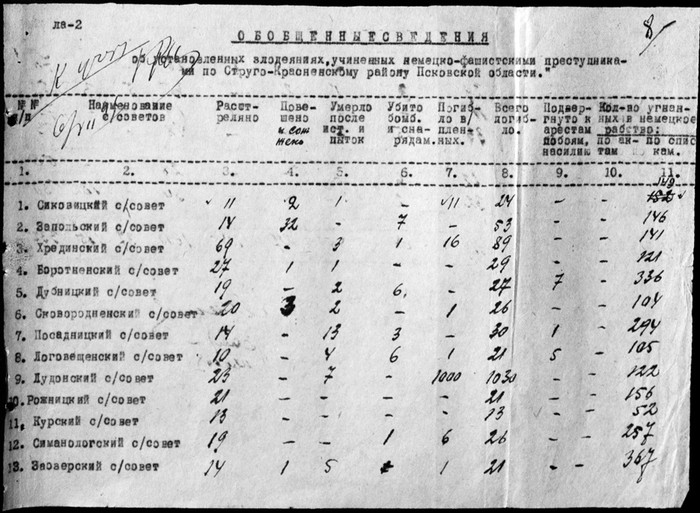 ла-2
ОБОБЩЕННЫЕ СВЕДЕНИЯ
об установленных злодеяниях, учиненных немецко-фашистскими преступника-
ми по Струго-Красненскому району Псковской области."
№№ Наименование Расст- Пове- Умерло Убито Погиб- Всего Подвер- Кол-во угнан-
п/п с/советов реляно шено после бомб. ло в/ погиб- гнуто к ных в немецкое
ист. и и сна- плен- ло. арестам рабство:
пыток рядам. ных. побоям, по ак- по спис
насилию там кам.
1. 2. 3. 4. 5. 6. 7. 8. 9. 10. 11.
1. Сиковицкий с/совет 11 2 1 - 11 24 - -
2. Запольский с/совет 14 32 - 7 - 53 - - 146
3. Хрединский с/совет 69 - 3 1 16 89 - - 141
4. Боротненский с/совет 27 1 1 - - 29 - - 121
5. Дубницкий с/совет 19 - 2 6 - 27 7 - 336
6. Сковородненский с/совет 20 3 2 - 1 26 - - 104
7. Посадницкий с/совет 14 - 13 3 - 30 1 - 294
8. Логовещенский с/совет 10 - 4 6 1 21 5 - 105
9. Лудонский с/совет 23 - 7 - 1000 1030 - - 122
10. Рожницкий с/совет 21 - - - - 21 - - 156
11. Курский с/совет 13 - - - - 13 - - 52
12. Симанологский с/совет 19 - - 1 6 26 - - 257
13. Заозерский с/совет 14 1 5 1 21 - - 367